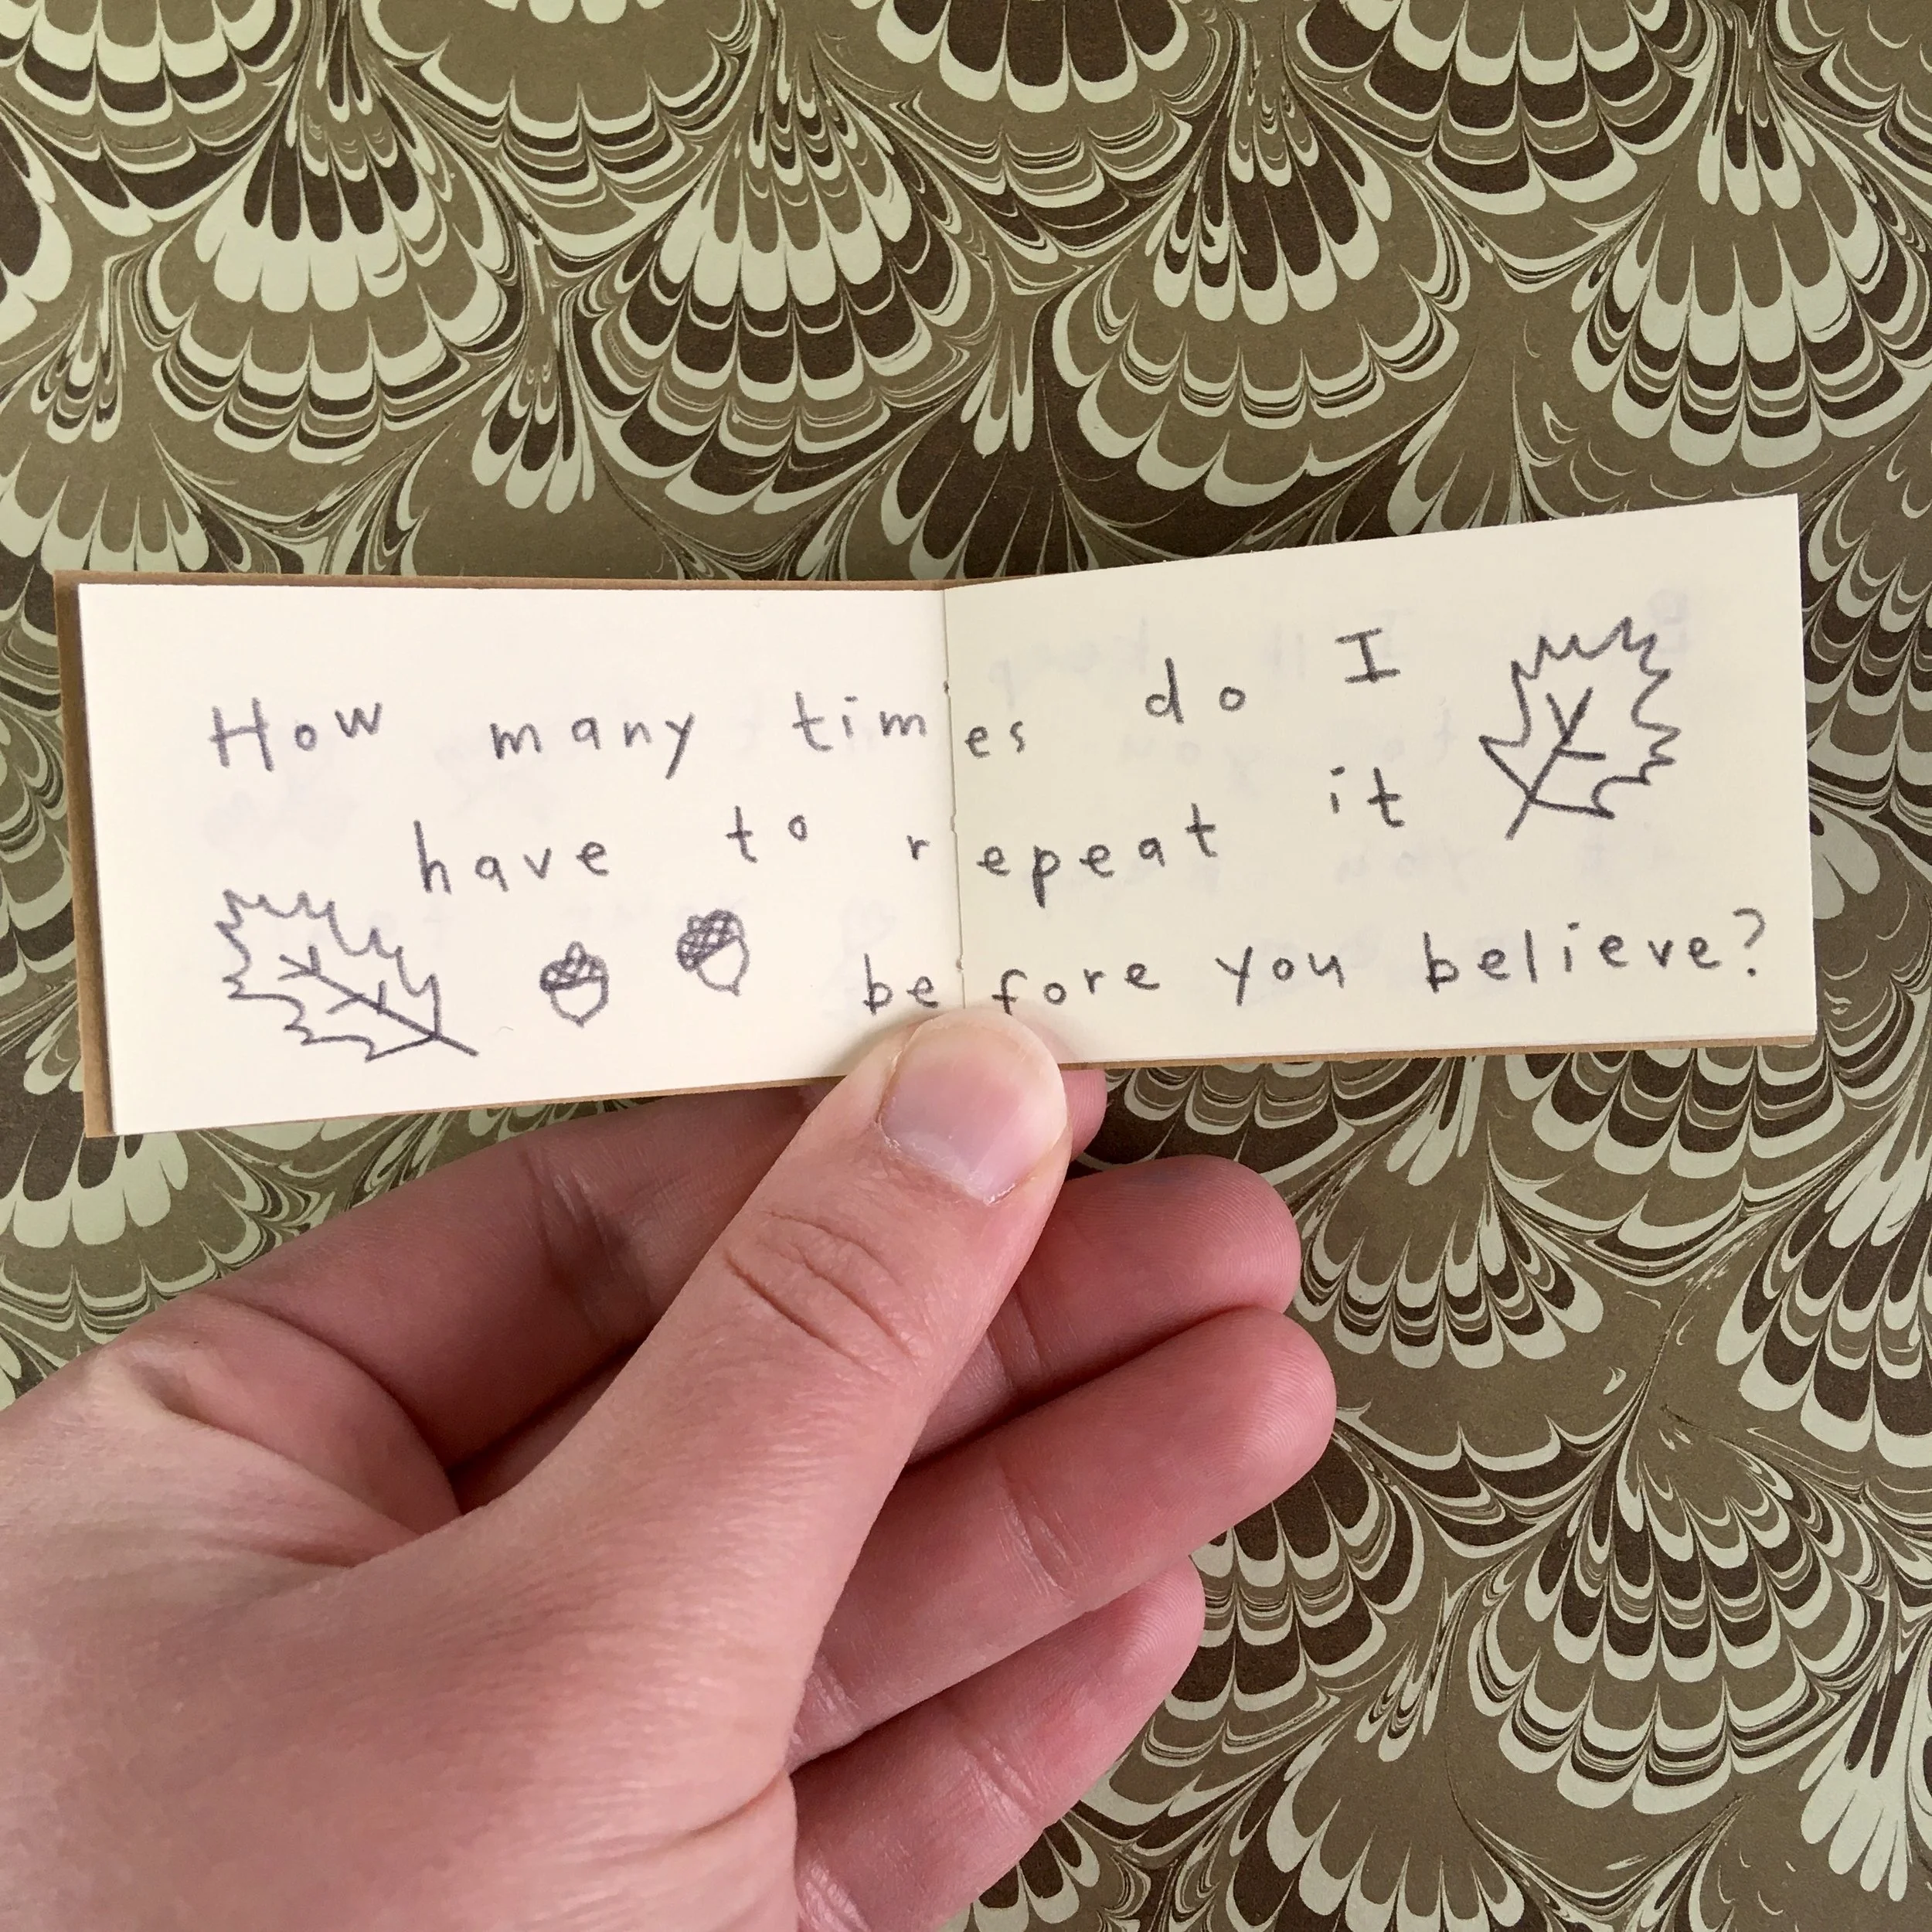 How many times do I
have to repeat it
before you believe?